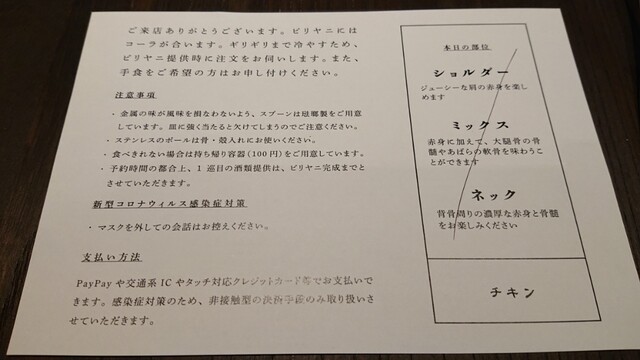 ご来店ありがとうございます。ビリヤニには
コーラが合います。ギリギリまで冷やすため、
ビリヤニ提供時に注文をお伺いします。また、
手食をご希望の方はお申し付けください。
注意事項
・金属の味が風味を損なわないよう、スプーンは琺瑯製をご用意
しています。皿に強く当たると欠けてしまうのでご注意ください。
・ステンレスのボールは骨・殻入れにお使いください。
・食べきれない場合は持ち帰り容器(100円)をご用意しています。
・予約時間の都合上、1巡目の酒類提供は、ビリヤニ完成までと
させていただきます。
新型コロナウィルス感染症対策
・マスクを外しての会話はお控えください。
支払い方法
PayPayや交通系ICやタッチ対応クレジットカード等でお支払いで
きます。感染症対策のため、非接触型の決済手段のみ取り扱いさ
せていただきます。
本日の部位
ショルダー
ジューシーな肩の赤身を楽し
めます
ミックス
赤身に加えて、大腿骨の骨
髄やあばらの軟骨を味わうこ
とができます
ネック
背骨周りの濃厚な赤身と骨髄
をお楽しみください
チキン